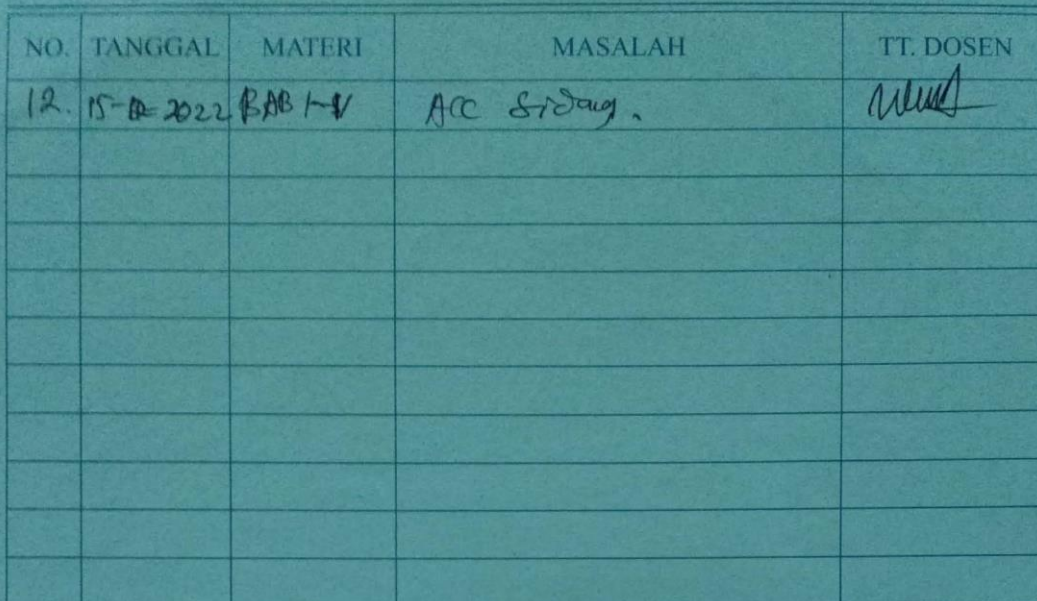 NO. TANGGAL MATERI MASALAH TT. DOSEN
12. 15-12-2022 BAB I-V ACC Sidang.